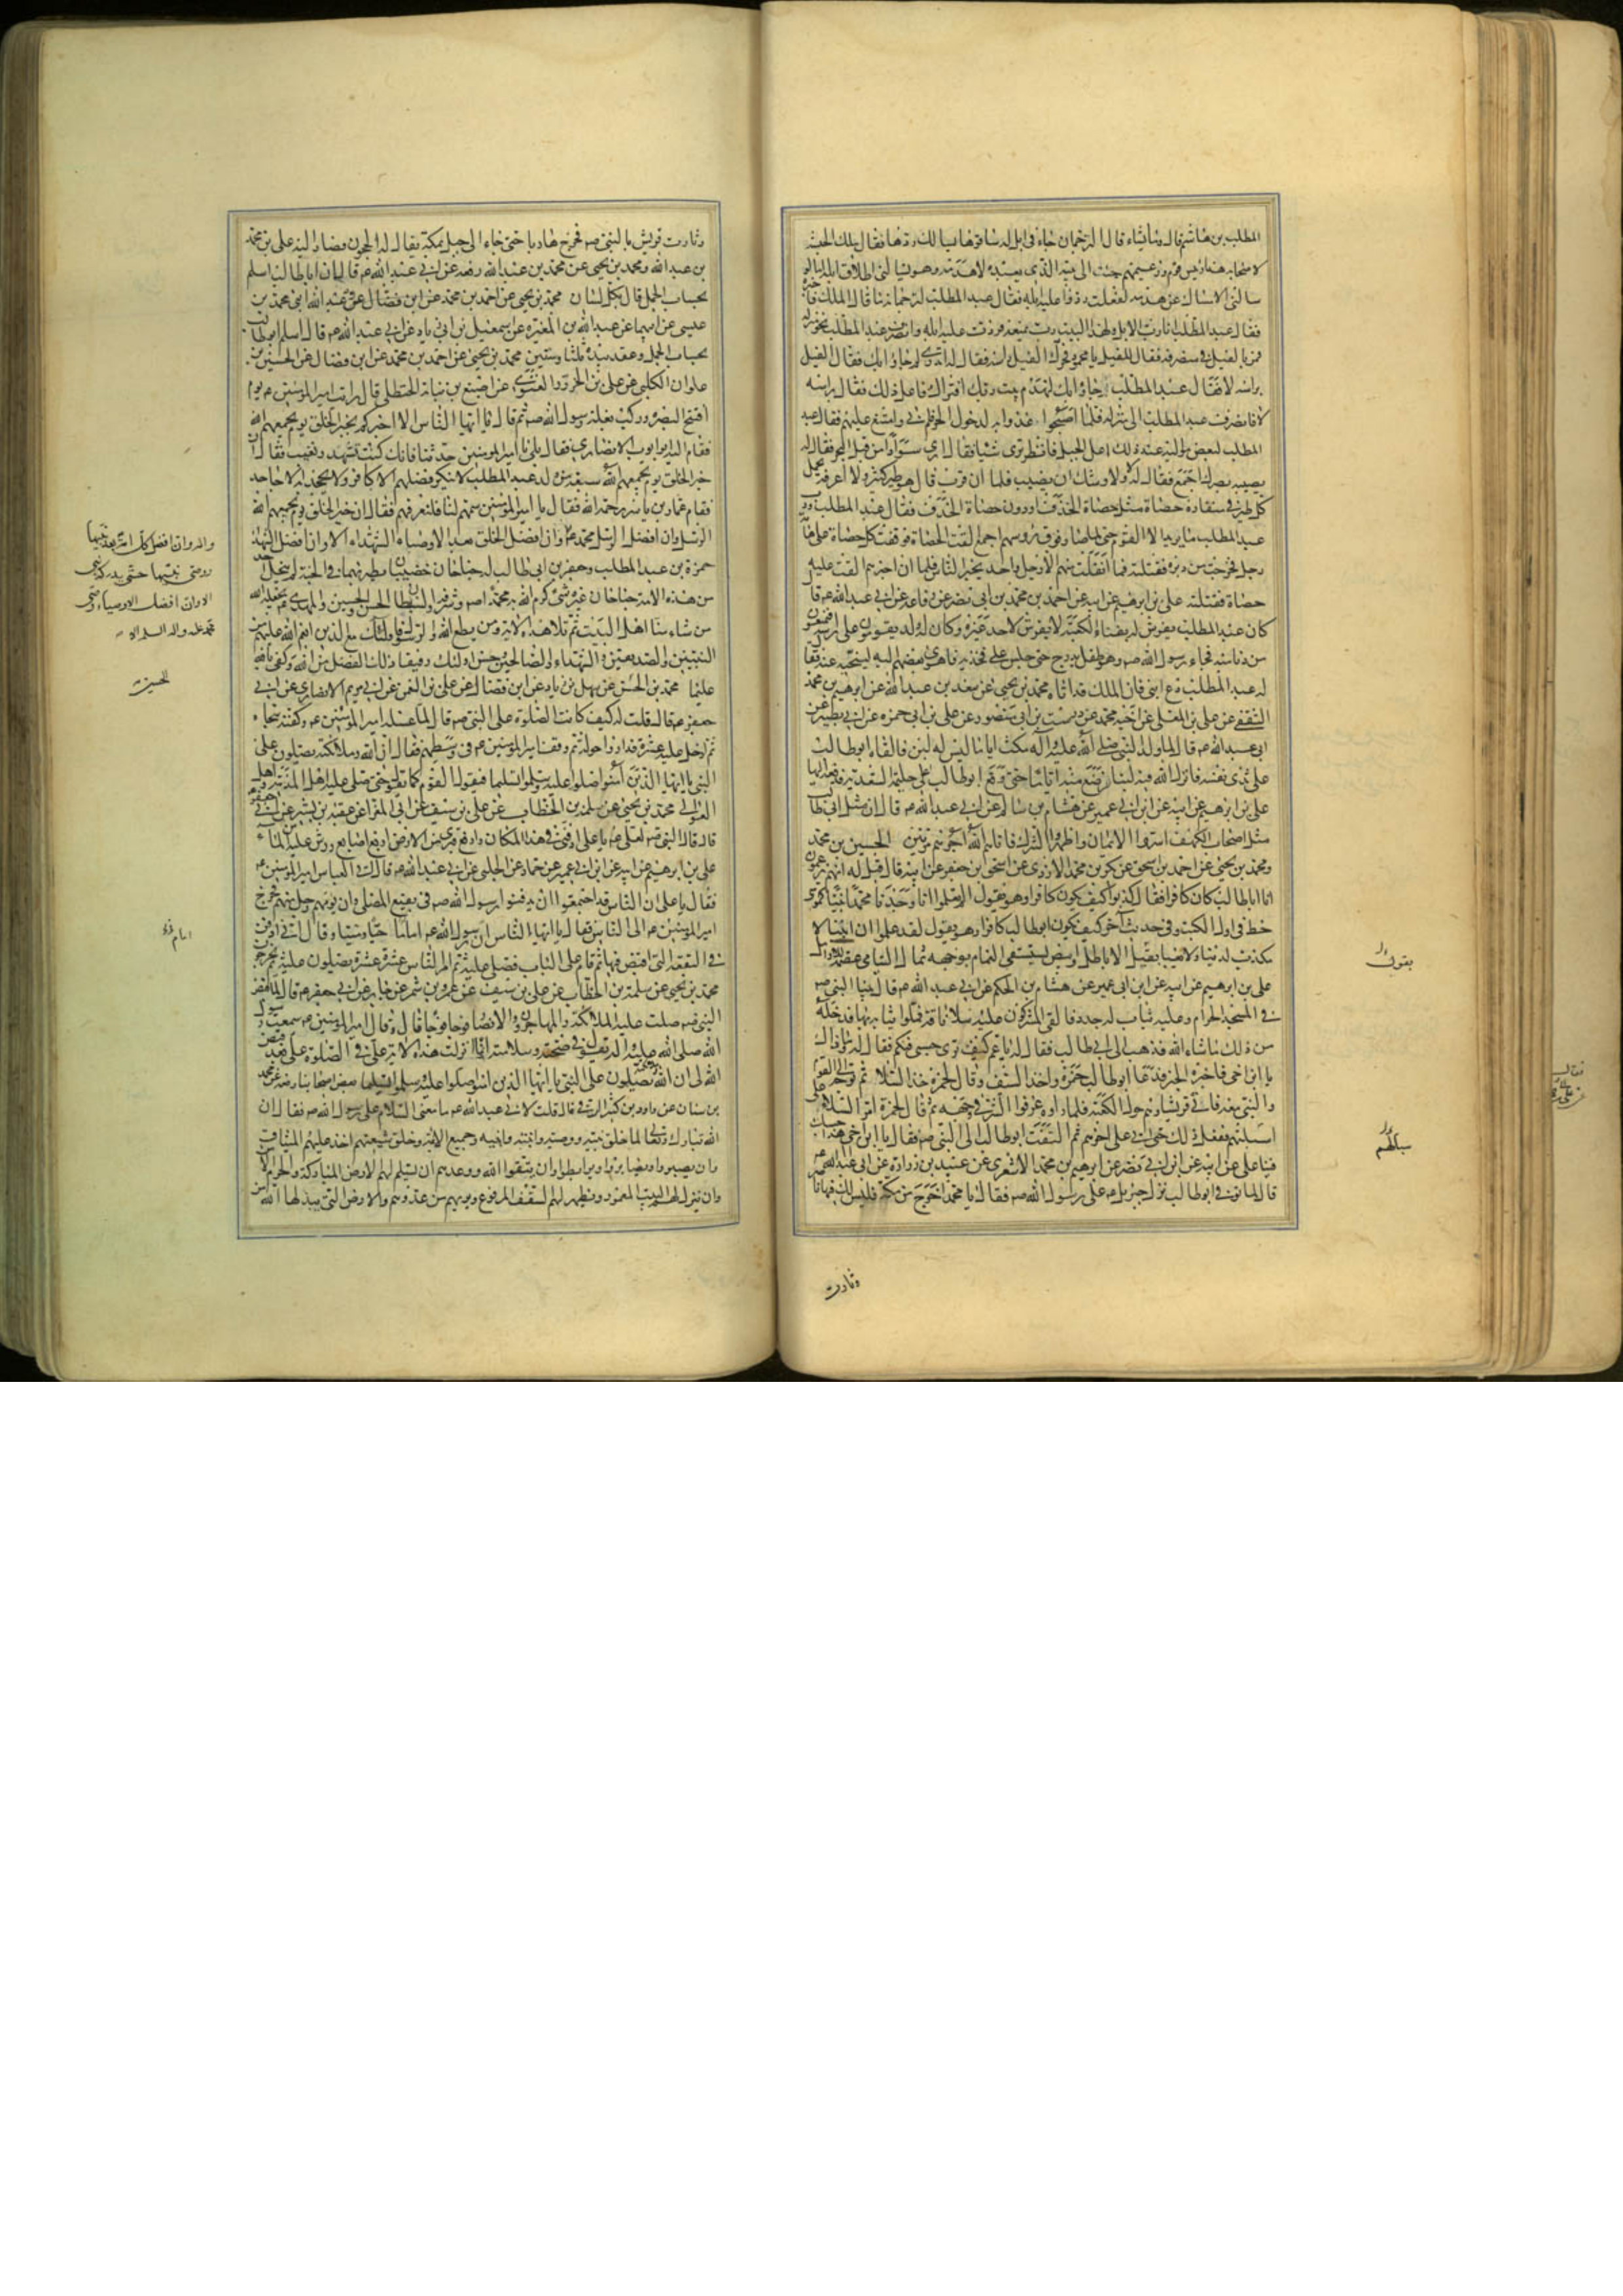 المطلب بن هاشم قال وما يشاء قال الترجمان جاء في ابل له ساقوها يسالك ردها فقال ملك الحبشة
لاصحابه هذا رئيس قوم وزعيمهم جئت الى بيته الذي يعبده لاهدمه وهو يسالني اطلاق ابله اما لو
سالني الامساك عن هدمه لفعلت ردوا عليه ابله فقال عبد المطلب لترجمانه ما قال الملك فاخبره
فقال عبد المطلب انا رب الابل ولهذا البيت رب يمنعه فردت عليه ابله وانصرف عبد المطلب نحو منزله
فمر بالفيل في منصرفه فقال للفيل يا محمود فحرك الفيل راسه فقال له اتدري لم جاؤا بك فقال الفيل
براسه لا فقال عبد المطلب جاؤا بك لتهدم بيت ربك افتراك فاعل ذلك فقال براسه
لا فانصرف عبد المطلب الى منزله فلما اصبحوا غدوا به لدخول الحرم فابى وامتنع عليهم فقال عبد
المطلب لبعض مواليه عند ذلك اعل الجبل فانظر ترى شيئا فقال ارى سوادا من قبل البحر فقال له
يصيبه بصرك اجمع فقال له لا ولاوشك ان يصيب فلما ان قرب قال هو طير كثير ولا اعرفه يحمل
كل طير في منقاره حصاة مثل حصاة الخذف او دون حصاة الخذف فقال عبد المطلب ورب
عبد المطلب ما يريد الا القوم حتى لما صاروا فوق رؤسهم اجمع القت الحصاة فوقعت كل حصاة على هامة
رجل فخرجت من دبره فقتلته فما انفلت منهم الا رجل واحد يخبر الناس فلما ان اخبرهم القت عليه
حصاة فقتلته علي بن ابرهيم عن ابيه عن احمد بن محمد بن ابي نصر عن رفاعة عن ابي عبد الله ع قال
كان عبد المطلب يفرش له بفناء الكعبة لا يفرش لاحد غيره وكان له ولد يقومون على راسه فيمنعون
من دنا منه فجاء رسول الله ص وهو طفل يدرج حتى جلس على فخذيه فاهوى بعضهم اليه لينحيه عنه فقال
له عبد المطلب دع ابني فان الملك قد اتاه محمد بن يحيى عن سعد بن عبد الله عن ابرهيم بن محمد
الثقفي عن علي بن المعلى عن اخيه محمد عن درست بن ابي منصور عن علي بن ابي حمزة عن ابي بصير عن
ابي عبد الله ع قال لما ولد النبي صلى الله عليه وآله مكث اياما ليس له لبن فالقاه ابو طالب
على ثدي نفسه فانزل الله فيه لبنا فرضع منه اياما حتى وقع ابو طالب على حليمة السعدية فدفعه اليها
علي بن ابرهيم عن ابيه عن ابن ابي عمير عن هشام بن سالم عن ابي عبد الله ع قال ان مثل ابي طالب
مثل اصحاب الكهف اسروا الايمان واظهروا الشرك فاتاهم الله اجرهم مرتين الحسين بن محمد
ومحمد بن يحيى عن احمد بن اسحق عن بكر بن محمد الازدي عن اسحق بن جعفر عن ابيه قال قيل له انهم يزعمون
ان ابا طالب كان كافرا فقال كذبوا كيف يكون كافرا وهو يقول الم تعلموا انا وجدنا محمدا نبيا كموسى
خط في اول الكتب وفي حديث آخر كيف يكون ابو طالب كافرا وهو يقول لقد علموا ان ابننا لا
مكذب لدينا ولا يعبا بقيل الاباطل وابيض يستسقى الغمام بوجهه ثمال اليتامى عصمة للارامل
علي بن ابرهيم عن ابيه عن ابن ابي عمير عن هشام بن الحكم عن ابي عبد الله ع قال بينا النبي ص
في المسجد الحرام وعليه ثياب له جدد فالقى المشركون عليه سلا ناقة فملؤا ثيابه بها فدخله
من ذلك ما شاء الله فذهب الى ابي طالب فقال له يا عم كيف ترى حسبي فيكم فقال له وما ذاك
يا ابن اخي فاخبره الخبر فدعا ابو طالب حمزة واخذ السيف وقال لحمزة خذ السلا ثم توجه الى القوم
والنبي معه فاتى قريشا وهم حول الكعبة فلما راوه عرفوا الشر في وجهه ثم قال لحمزة امر السلا على
اسبلتهم ففعل ذلك حتى اتى على اخرهم ثم التفت ابو طالب الى النبي ص فقال يا ابن اخي هذا حسبك
فينا علي عن ابيه عن ابن ابي نصر عن ابرهيم بن محمد الاشعري عن عبيد بن زرارة عن ابي عبد الله ع
قال لما توفي ابو طالب نزل جبريل ع على رسول الله ص فقال يا محمد اخرج من مكة فليس لك فيها ناصر
وثارت
يقول
سبلتهم
وثارت قريش بالنبي ص فخرج هاربا حتى جاء الى جبل بمكة يقال له الحجون فصار اليه علي بن محمد
بن عبد الله ومحمد بن يحيى عن محمد بن عبد الله رفعه عن ابي عبد الله ع قال ان ابا طالب اسلم
بحساب الجمل قال بكل لسان محمد بن يحيى عن احمد بن محمد عن ابن فضال عن عبد الله ابني محمد بن
عيسى عن ابيهما عن عبد الله بن المغيرة عن اسمعيل بن ابي زياد عن ابي عبد الله ع قال اسلم ابو طالب
بحساب الجمل وعقد بيده ثلثا وستين محمد بن يحيى عن احمد بن محمد عن ابن فضال عن الحسين بن
علوان الكلبي عن علي بن الحزور الغنوي عن اصبغ بن نباتة الحنظلي قال رايت امير المؤمنين ع يوم
افتتح البصرة وركب بغلة رسول الله ص ثم قال يا ايها الناس الا اخبركم بخير الخلق يوم يجمعهم الله
فقام اليه ابو ايوب الانصاري فقال بلى يا امير المؤمنين حدثنا فانك كنت تشهد ونغيب فقال ان
خير الخلق يوم يجمعهم الله سبعة من ولد عبد المطلب لا ينكر فضلهم الا كافر ولا يجحد به الا جاحد
فقام عمار بن ياسر رحمه الله فقال يا امير المؤمنين سمهم لنا فلنعرفهم فقال ان خير الخلق يوم يجمعهم الله
الرسل وان افضل الرسل محمد ص وان افضل الخلق بعد الاوصياء الشهداء الا وان افضل الشهداء
حمزة بن عبد المطلب وجعفر بن ابي طالب له جناحان خضيبان يطير بهما في الجنة لم ينحل احد
من هذه الامة جناحان غيره شيء كرم الله به محمدا ص وشرفه والسبطان الحسن والحسين والمهدي ع يجعله الله
من شاء منا اهل البيت ثم تلا هذه الاية ومن يطع الله والرسول فاولئك مع الذين انعم الله عليهم من
النبيين والصديقين والشهداء والصالحين وحسن اولئك رفيقا ذلك الفضل من الله وكفى بالله
عليما محمد بن الحسن عن سهل بن زياد عن ابن فضال عن علي بن النعمن عن ابي مريم الانصاري عن ابي
جعفر ع قال قلت له كيف كانت الصلوة على النبي ص قال لما غسله امير المؤمنين ع وكفنه سجاه
ثم ادخل عليه عشرة فداروا حوله ثم وقف امير المؤمنين ع في وسطهم فقال ان الله وملائكته يصلون على
النبي يا ايها الذين آمنوا صلوا عليه وسلموا تسليما فيقول القوم كما يقول حتى صلى عليه اهل المدينة واهل
العوالي محمد بن يحيى عن سلمة بن الخطاب عن علي بن سيف عن ابي المغرا عن عقبة بن بشير عن ابي جعفر
قال قال النبي ص لعلي ع يا علي ادفني في هذا المكان وارفع قبري من الارض اربع اصابع ورش عليه من الماء
علي بن ابرهيم عن ابيه عن ابن ابي عمير عن حماد عن الحلبي عن ابي عبد الله ع قال اتى العباس امير المؤمنين ع
فقال يا علي ان الناس قد اجتمعوا ان يدفنوا رسول الله ص في بقيع المصلى وان يؤمهم رجل منهم فخرج
امير المؤمنين ع الى الناس فقال يا ايها الناس ان رسول الله ص امامنا حيا وميتا وقال اني ادفن
في البقعة التي اقبض فيها ثم قام على الباب فصلى عليه ثم امر الناس عشرة عشرة يصلون عليه ثم يخرجون
محمد بن يحيى عن سلمة بن الخطاب عن علي بن سيف عن عمرو بن شمر عن جابر عن ابي جعفر ع قال لما قبض
النبي ص صلت عليه الملائكة والمهاجرون والانصار فوجا فوجا قال وقال امير المؤمنين ع سمعت رسول
الله صلى الله عليه وآله يقول في صحته وسلامته انما انزلت هذه الاية علي في الصلوة علي بعد قبض
الله لي ان الله وملائكته يصلون على النبي يا ايها الذين امنوا صلوا عليه وسلموا تسليما بعض اصحابنا رفعه عن محمد
بن سنان عن داود بن كثير الرقي قال قلت لابي عبد الله ع ما معنى السلام على رسول الله ص فقال ان
الله تبارك وتعالى لما خلق نبيه ووصيه وابنته وابنيه وجميع الائمة وخلق شيعتهم اخذ عليهم الميثاق
وان يصبروا ويصابروا ويرابطوا وان يتقوا الله ووعدهم ان يسلم لهم الارض المباركة والحرم الامن
وان ينزل لهم البيت المعمور ويظهر لهم السقف المرفوع ويريحهم من عدوهم والارض التي يبدلها الله
وان افضل كل امة بعد نبيها
وصي نبيها حتى يدركه نبي
الا وان افضل الاوصياء وصي
محمد عليه واله السلام الا
الحسين
امام